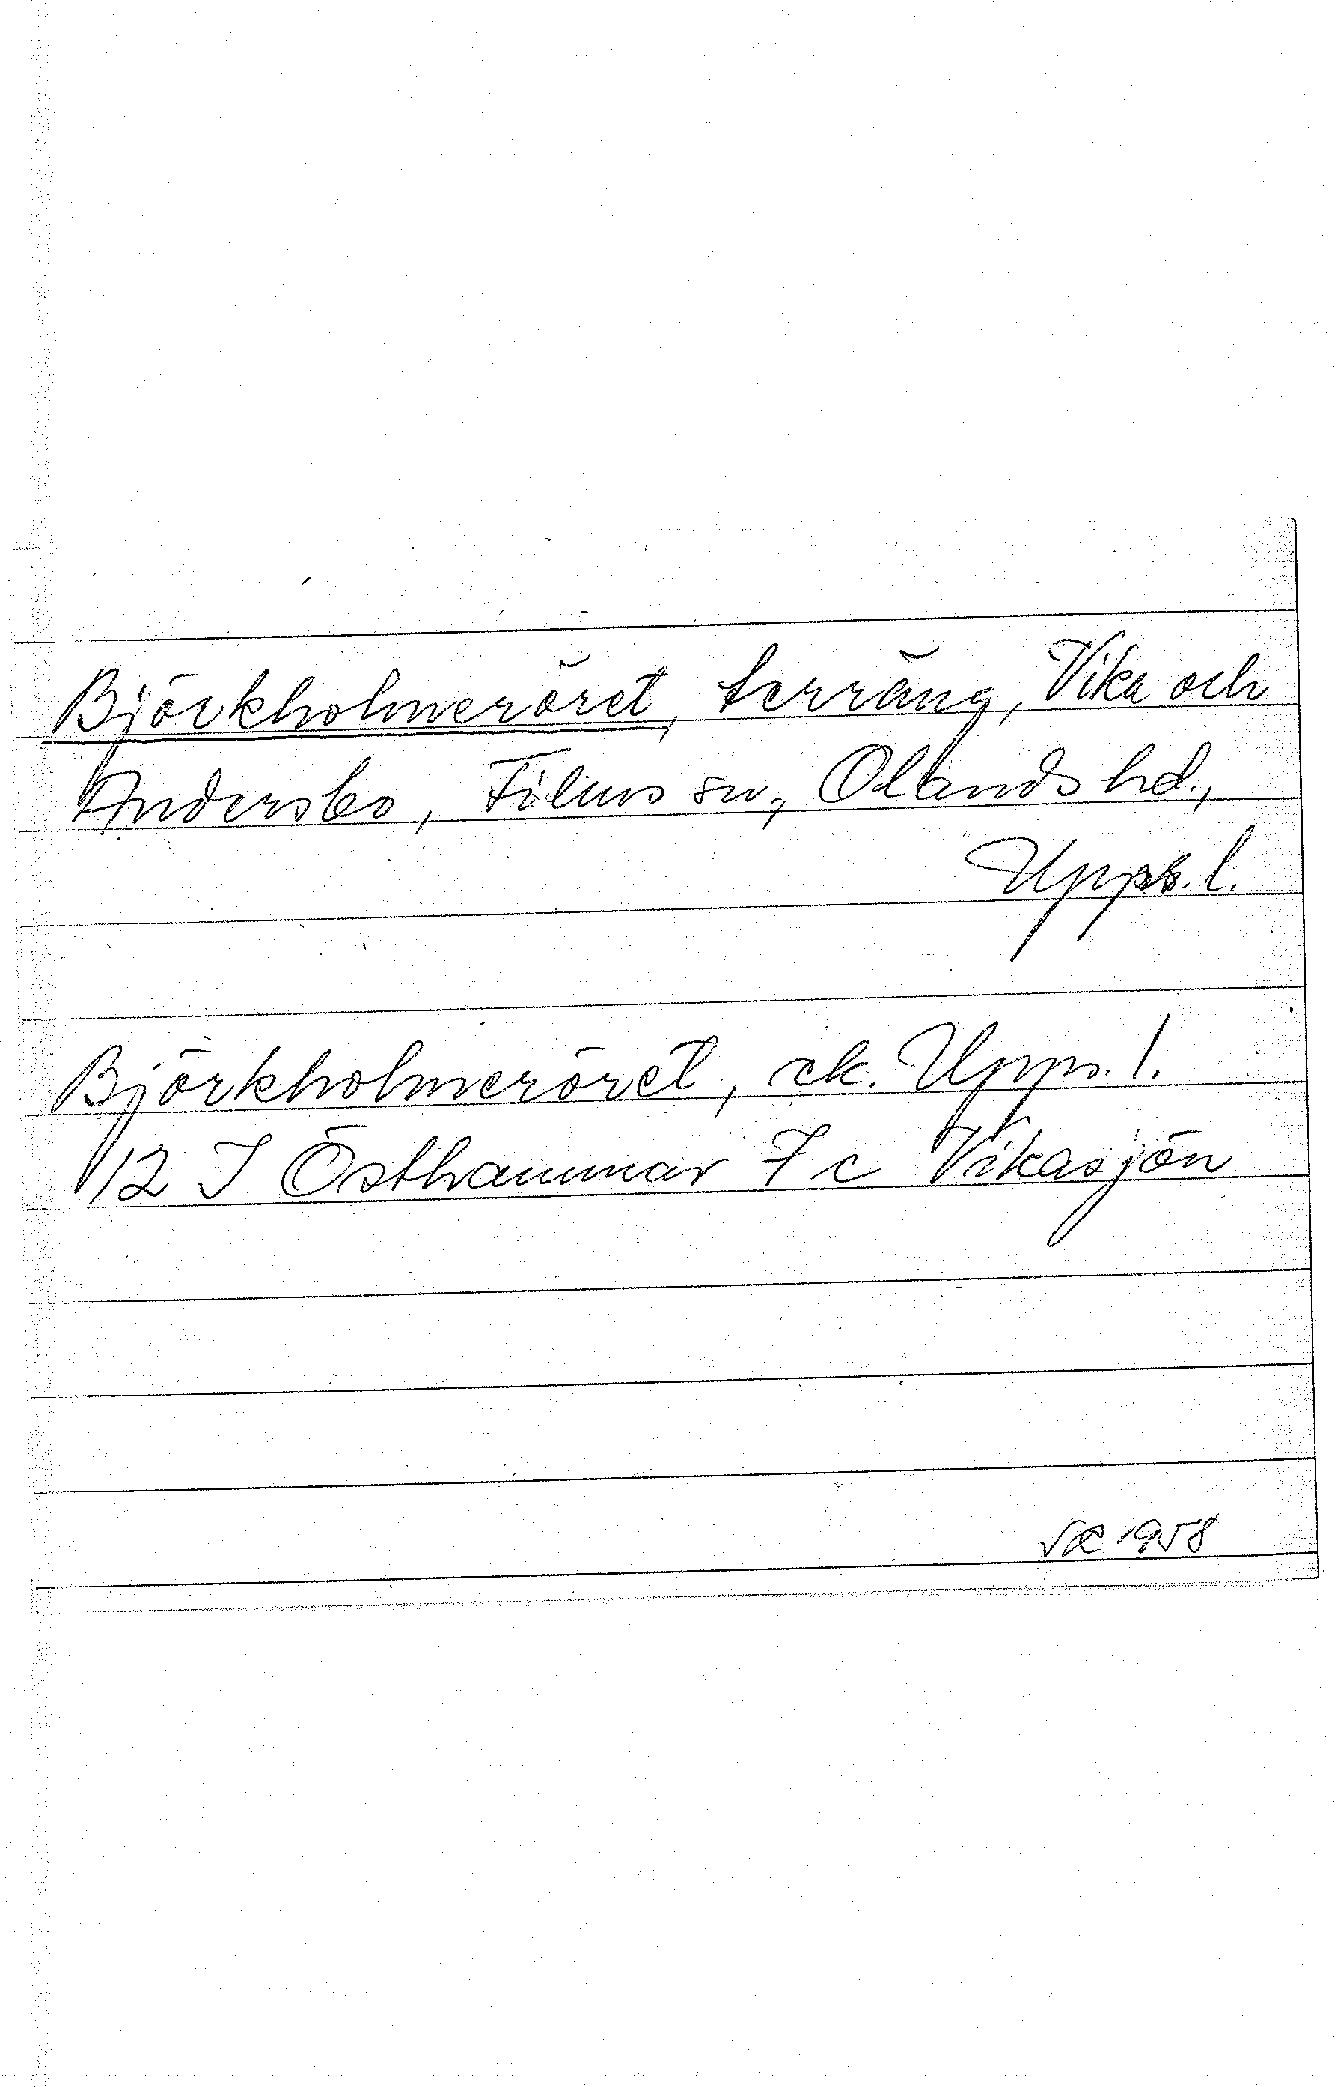 Björkholmeröret, terräng, Vika och
Andersbo, Films sn., Olands hd.,
Upps. l.
Björkholmeröret, ek. Upps. l.
12 I Östhammar 7 c Vikasjön
1958